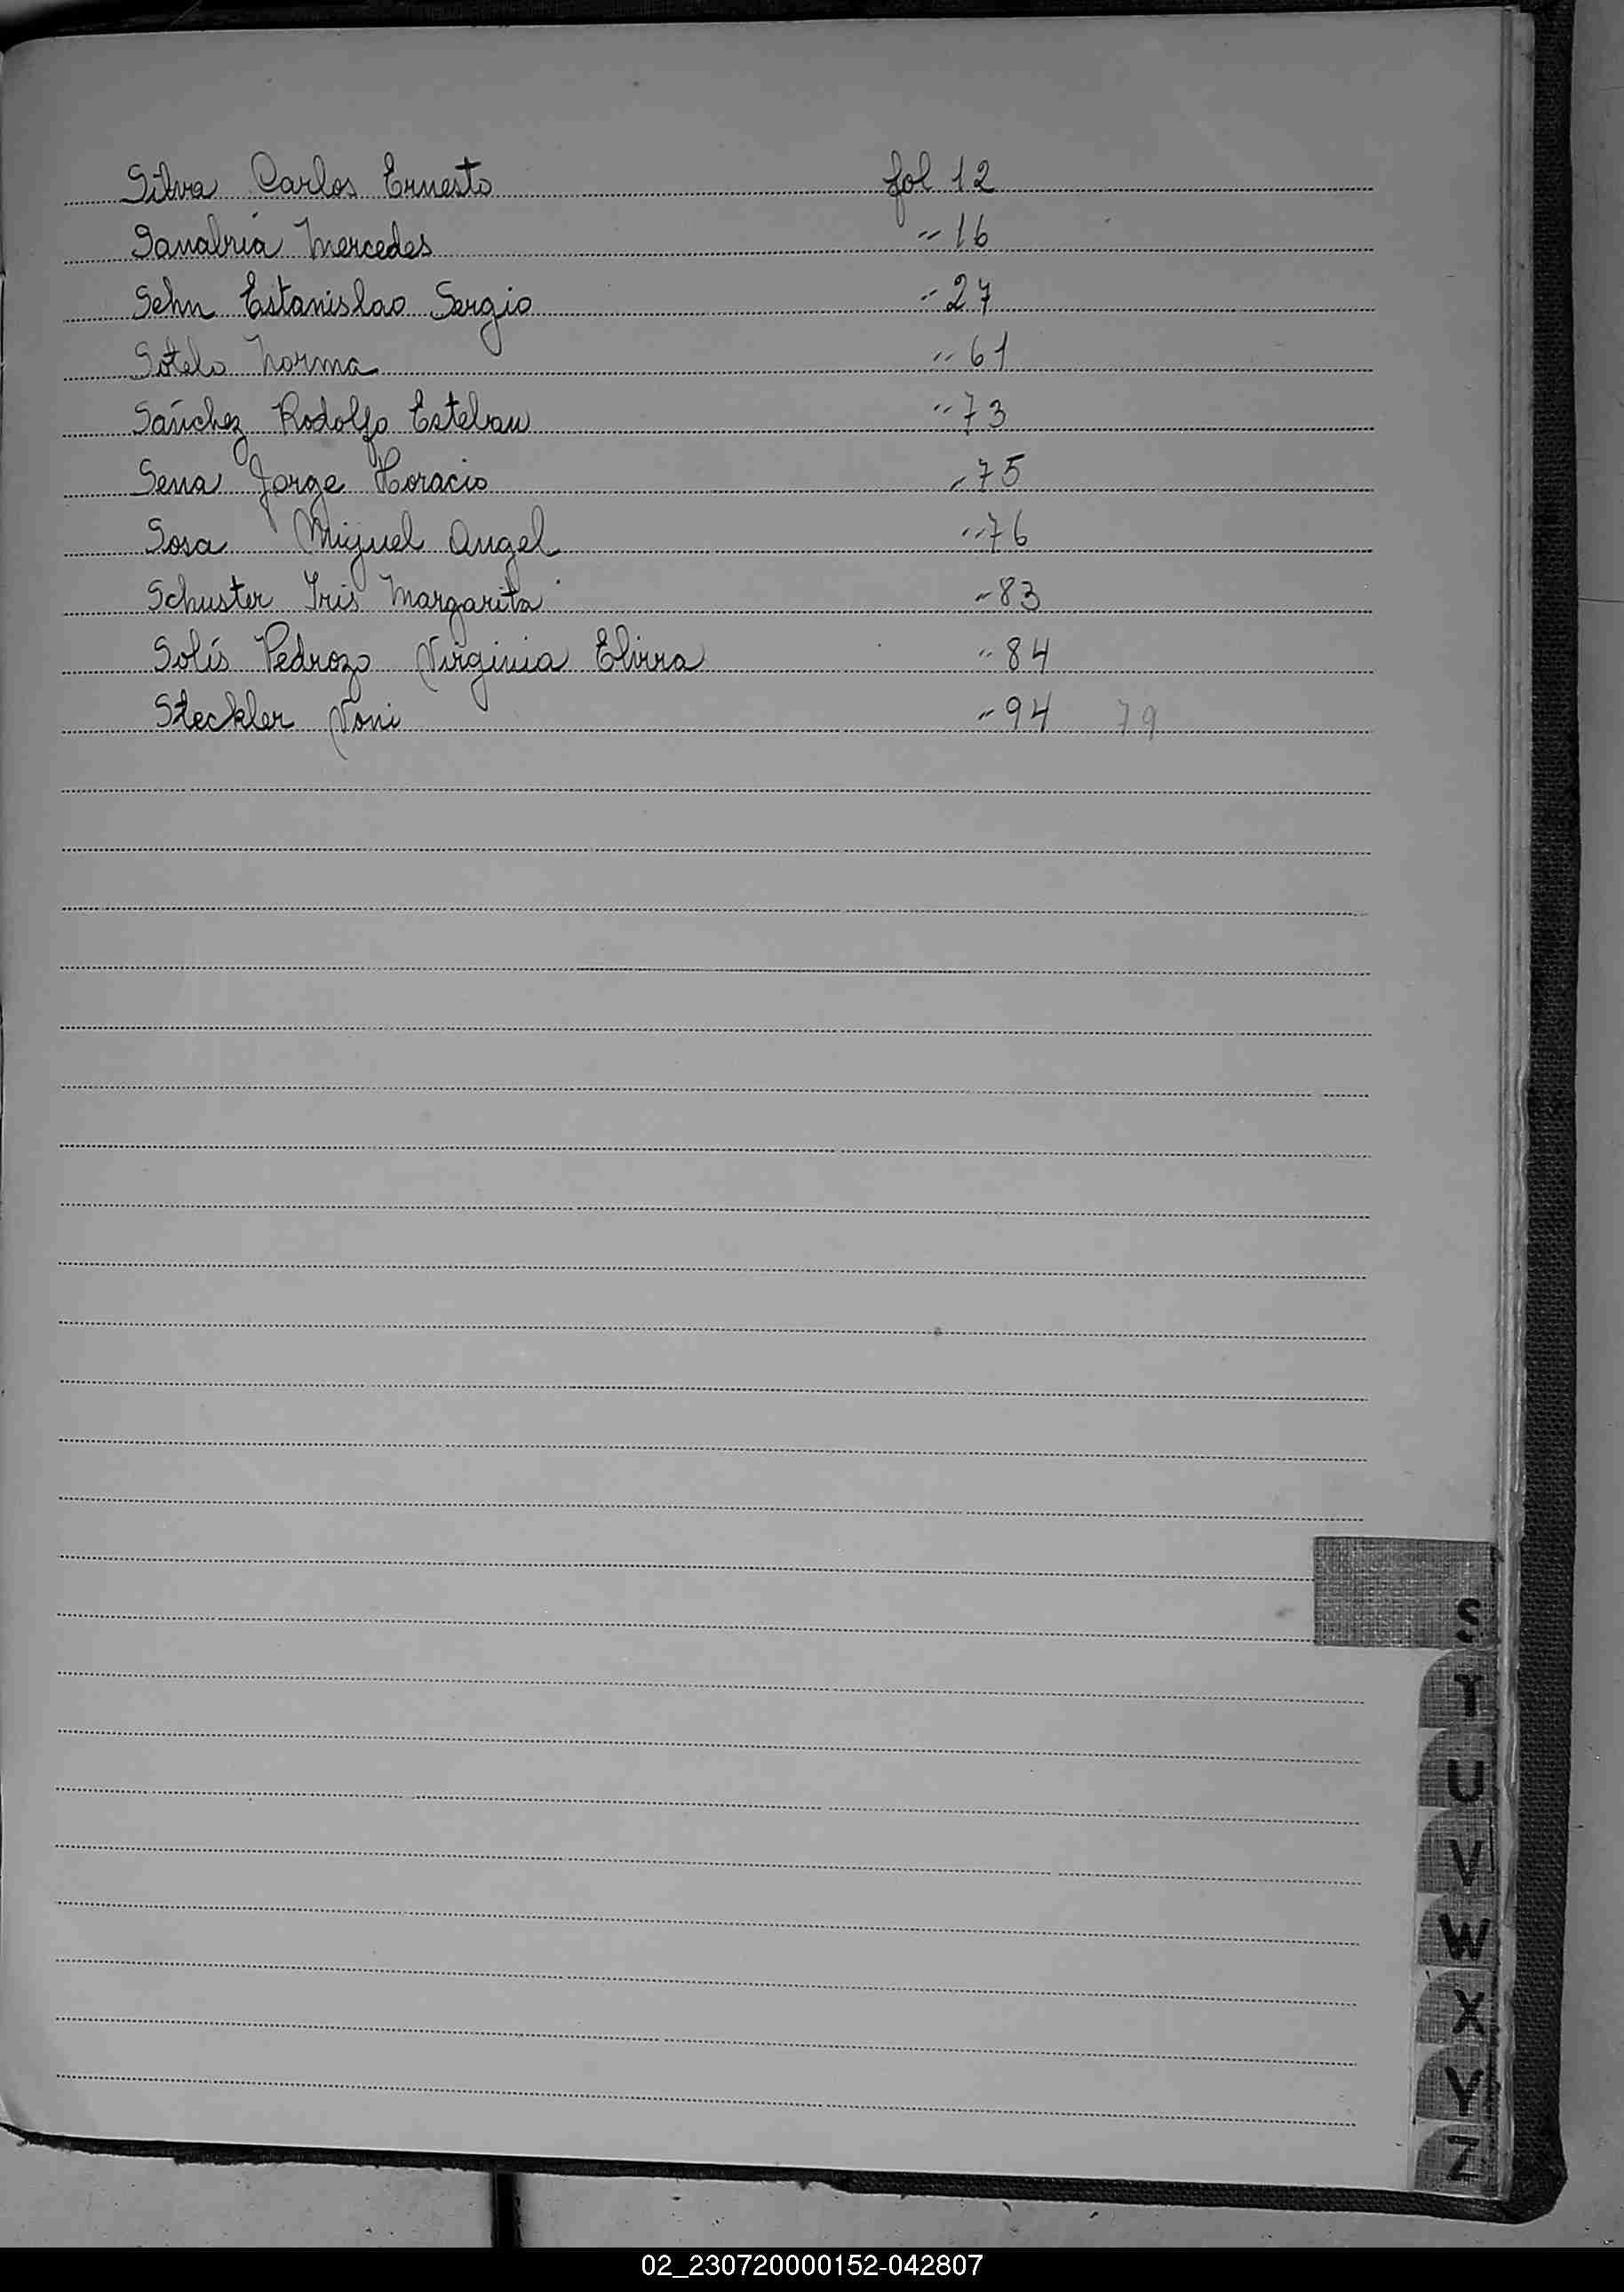 Silva Carlos Ernesto fol 12
Sanabria Mercedes " 16
Sehn Estanislao Sergio " 27
Sotelo Norma " 61
Sánchez Rodolfo Esteban " 73
Sena Jorge Horacio " 75
Sosa Miguel Angel " 76
Schuster Iris Margarita " 83
Solís Pedrozo Virginia Elvira " 84
Steckler Noni " 94 79
S
T
U
V
W
X
Y
Z
02_230720000152-042807